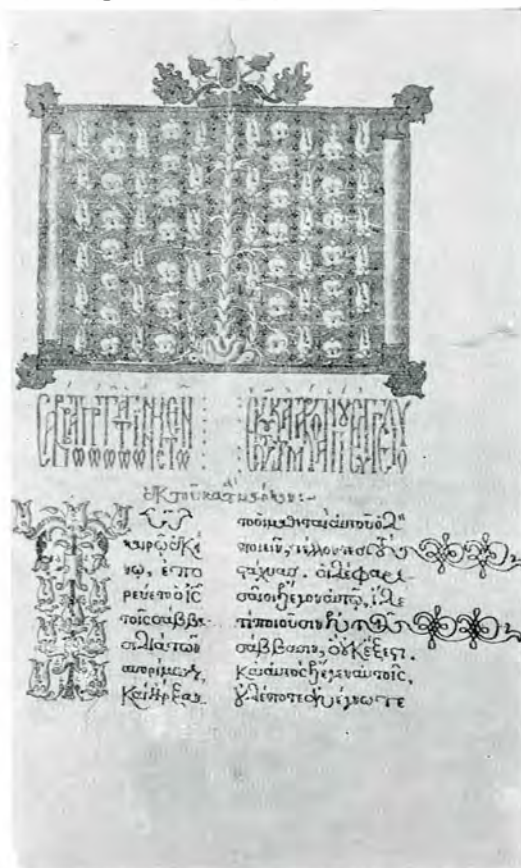 ἐκ τοῦ κατὰ μάρκον:~
Τῶ
καιρῶ ἐκεί
νω, ἐπο
ρεύετο ὁ ις
τοῖς σάββα
σι διὰ τῶν
σπορίμων,
καὶ ἤρξαν
το οἱ μαθηταὶ αὐτοῦ ὁδὸν
ποιεῖν, τίλλοντες τοὺς
στάχυας. οἱ δὲ φαρι
σαῖοι ἔλεγον αὐτῶ, ἴδε
τί ποιοῦσιν ἐν τοῖς
σάββασιν, ὃ οὐκ ἔξεστι.
καὶ αὐτὸς ἔλεγεν αὐτοῖς,
οὐδέποτε ἀνέγνωτε